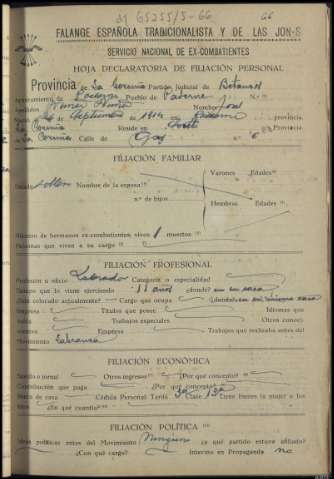 FALANGE ESPAÑOLA TRADICIONALISTA Y DE LAS JON-S
SERVICIO NACIONAL DE EX-COMBATIENTES
HOJA DECLARATORIA DE FILIACIÓN PERSONAL
Provincia de La Coruña Partido Judicial de Betanzos
Ayuntamiento de Paderne Pueblo de Paderne N.º
Apellidos Nombre José
de Septiembre de 1914 en Paderne provincia
La Coruña Reside en provincia
La Coruña Calle de n.º
FILIACIÓN FAMILIAR
Estado soltero Nombre de la esposa
Varones Edades
n.º de hijos
Hembras Edades
Número de hermanos ex-combatientes, viven 1 muertos
Personas que viven a su cargo
FILIACIÓN PROFESIONAL
Profesión u oficio Labrador Categoría o especialidad
Tiempo que lo viene ejerciendo 11 años ¿dónde? en su casa
¿Está colocado actualmente? Cargo que ocupa ¿dónde? en su misma casa
Empresa Títulos que posee Idiomas que
habla Trabajos especiales Otros conoci-
mientos Empresa Trabajos que realizaba antes del
Movimiento Labranza
FILIACIÓN ECONÓMICA
Sueldo o jornal Otros ingresos ¿Por qué concepto?
Contribución que paga ¿Por qué concepto?
Renta de casa Cédula Personal Tarifa 3ª Clase 13ª ¿Tiene bienes la mujer o los
hijos ¿En qué cuantía?
FILIACIÓN POLÍTICA
Ideas políticas antes del Movimiento Ninguna ¿a qué partido estuvo afiliado?
¿Con qué cargo? Intervino en Propaganda no